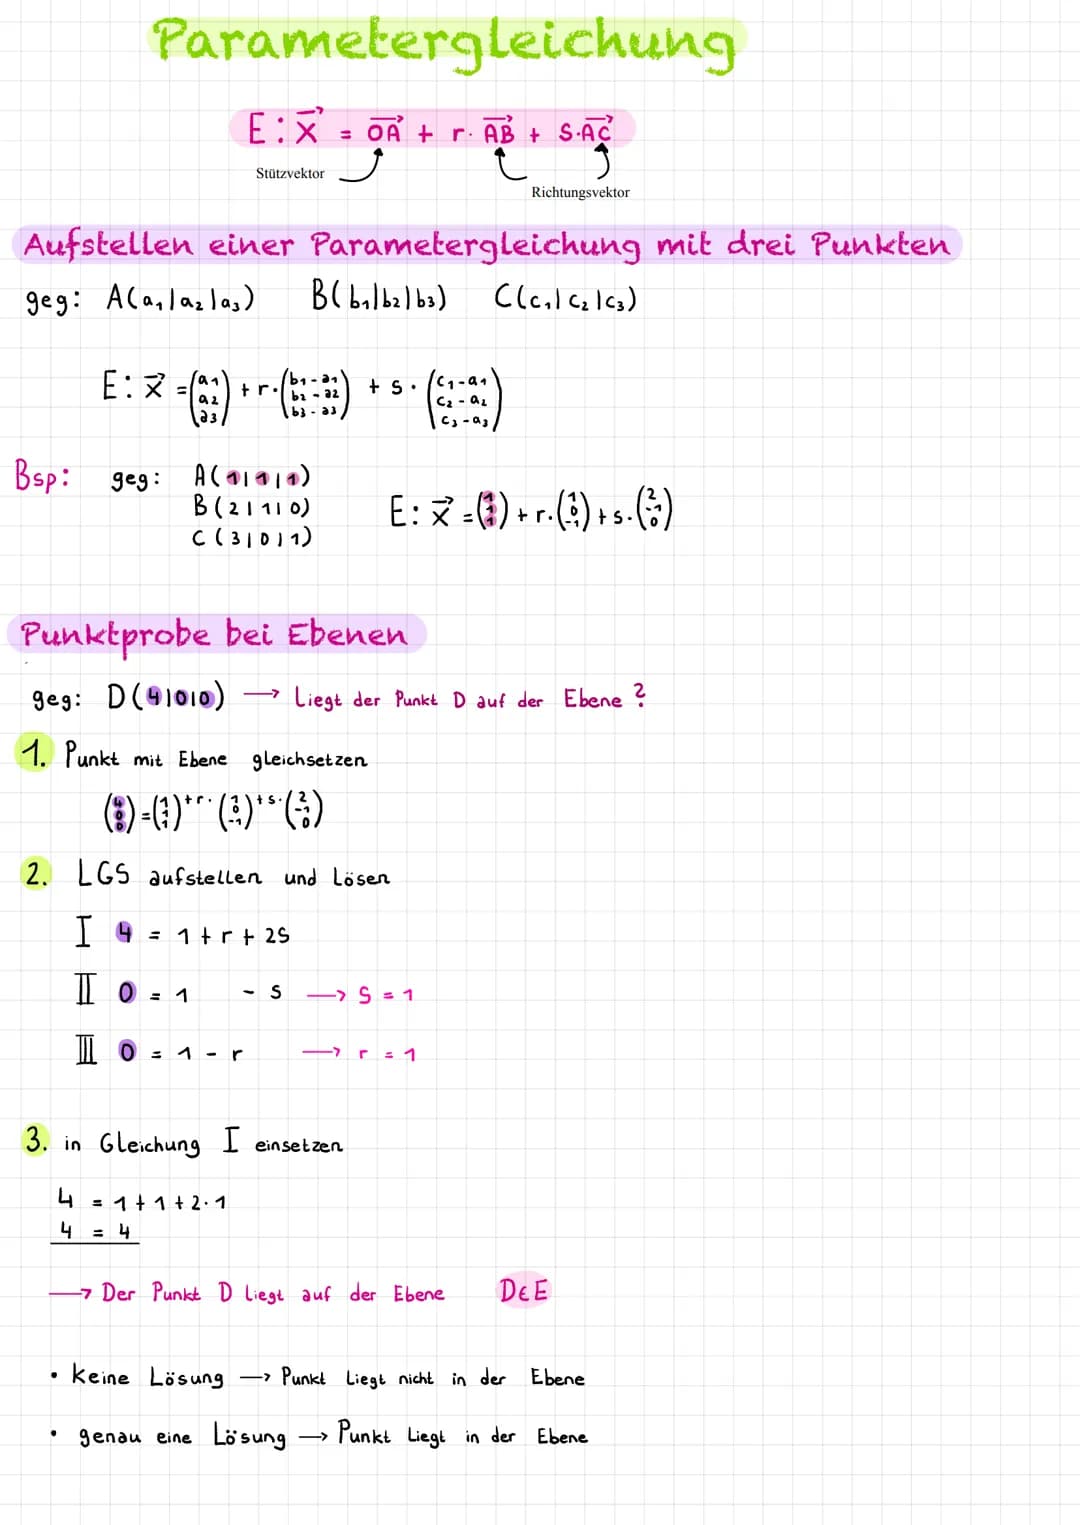 Parametergleichung
E: x⃗ = OA⃗ + r · AB⃗ + s · AC⃗
Stützvektor
Richtungsvektor
Aufstellen einer Parametergleichung mit drei Punkten
geg: A(a₁|a₂|a₃) B(b₁|b₂|b₃) C(c₁|c₂|c₃)
E: x⃗ = (a₁ a₂ a₃) + r · (b₁-a₁ b₂-a₂ b₃-a₃) + s · (c₁-a₁ c₂-a₂ c₃-a₃)
Bsp: geg: A(1|1|1)
B(2|1|0)
C(3|0|1)
E: x⃗ = (1 1 1) + r · (1 0 -1) + s · (2 -1 0)
Punktprobe bei Ebenen
geg: D(4|0|0) → Liegt der Punkt D auf der Ebene?
1. Punkt mit Ebene gleichsetzen
(4 0 0) = (1 1 1) + r · (1 0 -1) + s · (2 -1 0)
2. LGS aufstellen und Lösen
I 4 = 1 + r + 2s
II 0 = 1 - s → s = 1
III 0 = 1 - r → r = 1
3. in Gleichung I einsetzen
4 = 1 + 1 + 2 · 1
4 = 4
→ Der Punkt D Liegt auf der Ebene D∈E
• keine Lösung → Punkt Liegt nicht in der Ebene
• genau eine Lösung → Punkt Liegt in der Ebene